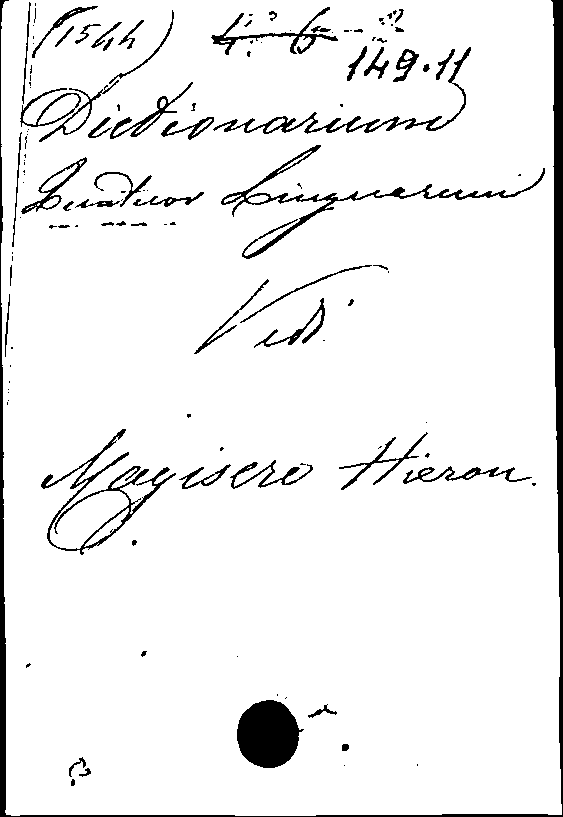 (1544)
149.11
Dictionarium
Quatuor Linguarum
Vedi
Magisero Hieron.